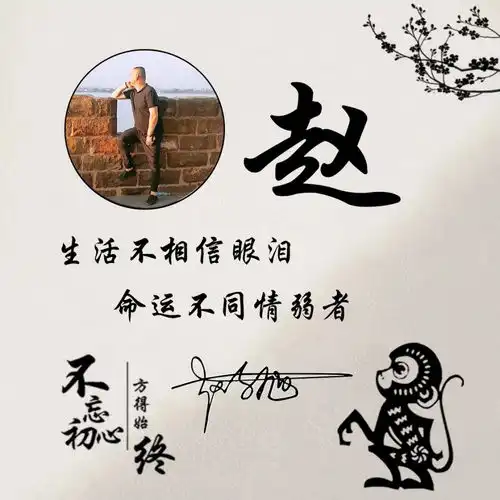 赵
生活不相信眼泪
命运不同情弱者
不忘初心
方得始终